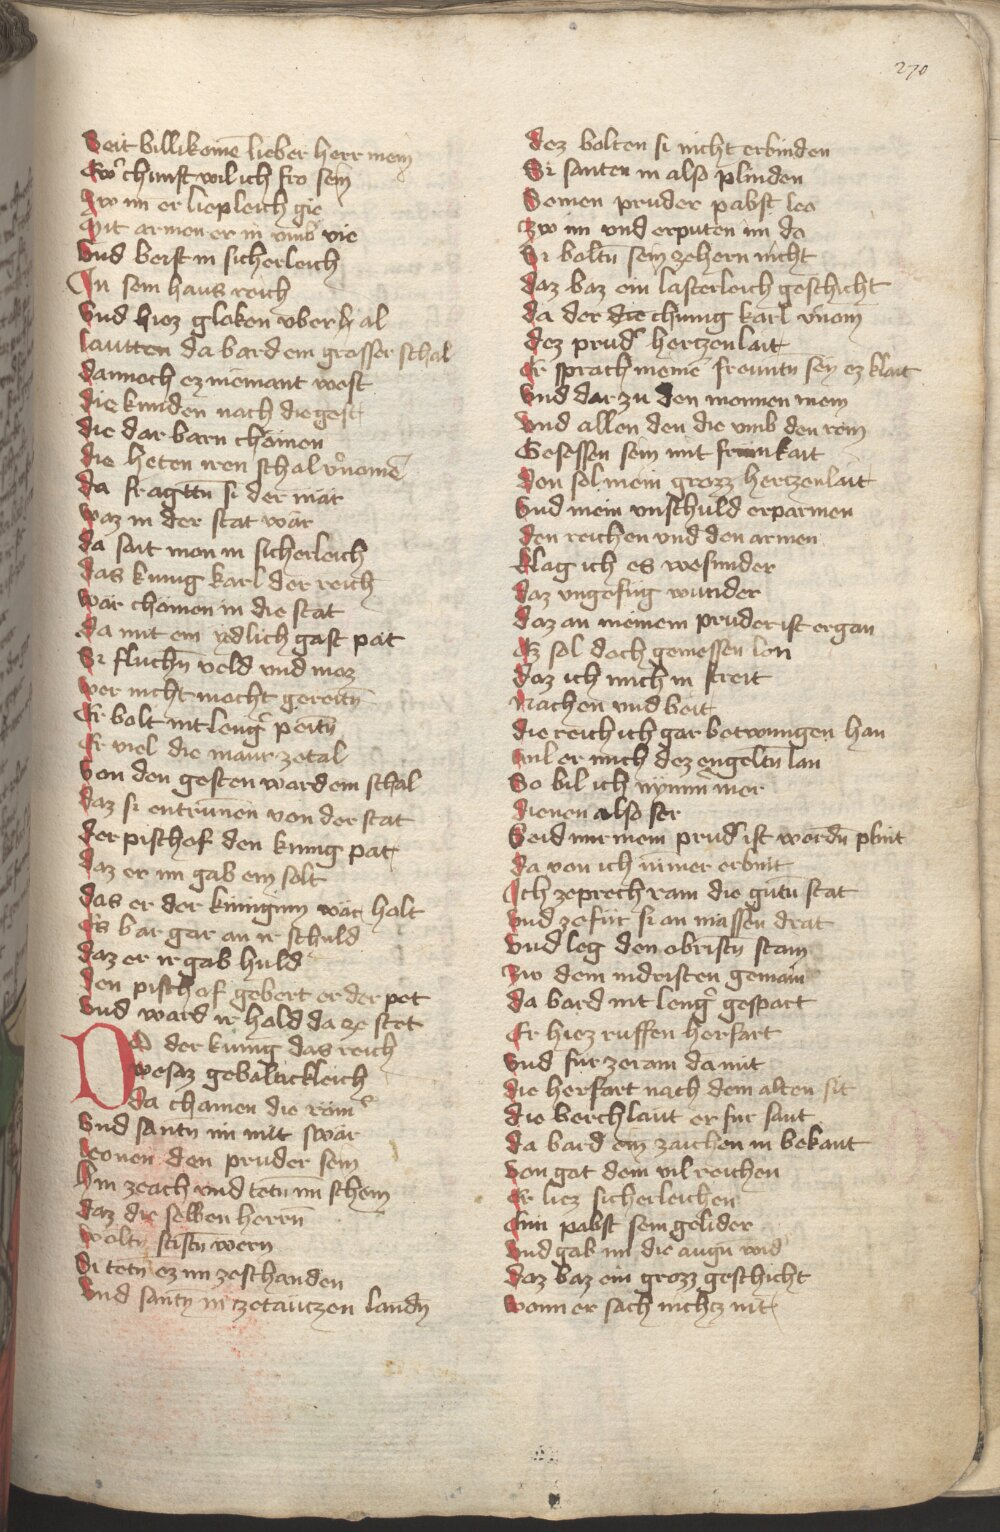 270
Seit billikomē lieber herr mein
Ewr̓ chunst wil ich fro sein
Zw im er liepleich gie
Mit armen er in vmb vie
Vnd beist in sicherleich
In sein haus reich
Vnd hiez gloken vber al
lautten da bard ein grosser schal
dannoch ez niemant west
die kunden nach die gest
die dar barn chömen
die heten iren schal v̓nomē
da fragttn̄ si der mär
waz in der stat wär
da sait man in sicherleich
das kunig karl der reich
wär chömen in die stat
da mit ein ydlich gast pat
Si fluchn̄ veld vnd moz
wer nicht mocht gereitn̄
Er bolt nit leng̓ peitn̄
Er viel die maur ze tal
Von den gesten ward ein schal
daz si entrunnen von der stat
der pischof den kunig pat
daz er im gab ein solt
das er der kunigin wär holt
Es bar gar an ir schuld
daz er ir gab huld
den pischof gebert er der pet
vnd ward ir hold da ze stet
DO der kunig das reich
wesaz gebaltickleich
da chamen die röm̓
Vnd santn̄ im mit swär
leonen den pruder sein
Hin ze ach vnd tetn̄ im schein
daz die selben herrn̄
woltn̄ seistn̄ wern
Si tetn̄ ez im ze schanden
Vnd santn̄ in ze tauczen landn̄
dez bolten si nicht erbinden
Si santen in also plinden
Seinen pruder pabst leo
Zw im vnd erputen im da
Si boltn̄ sein ze hern nicht
daz baz ein lasterleich geschicht
da der die chunig karl v̓nom
dez prud̓ hertzenlait
Er sprach meinē freuntn̄ sey ez klait
Vnd dar zu den mannen mein
vnd allen den die vmb den rein
Gesessen sein mit frumkait
den sol mein grozz hertzenlait
Vnd mein vnschuld erparmen
den reichen vnd den armen
klag ich es wesunder
daz vngefüg wunder
daz an meinem pruder ist ergan
Ez sol doch geniessen lon
daz ich mich in streit
Nachen vnd beit
die reich ich gar betwungen han
wil er mich dez engeltn̄ lan
So bil ich nymm̄ mer
dienen also ser
Seid mir mein prud̓ ist wordn̄ plint
da von ich immer erbint
Ich ze prech ram die gutn̄ stat
vnd ze für si an massen drat
vnd leg den obristn̄ stain
zw dem nidristen gemain
da bard nit leng̓ gespart
Er hiez ruffen herfart
vnd fur ze ram da mit
die herfart nach dem alten sit
die berch laut er fur sant
da bard ein zaichen in bekant
von got dem vil reichen
Er liez sicherleichen
Dem pabst sein gelider
vnd gab im die augn̄ wid̓
daz baz ein grozz geschicht
wann er sach nichcz nit